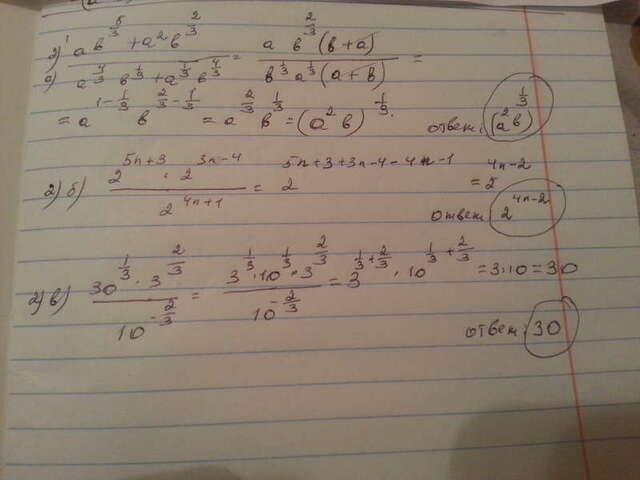 2) а) (ab^(5/3) + a²b^(2/3)) / (a^(4/3) b^(1/3) + a^(1/3) b^(4/3)) = (a b^(2/3) (b+a)) / (b^(1/3) a^(1/3) (a+b)) =
= a^(1-1/3) b^(2/3-1/3) = a^(2/3) b^(1/3) = (a²b)^(1/3).
ответ: (a²b)^(1/3)
2) б) (2^(5n+3) · 2^(3n-4)) / 2^(4n+1) = 2^(5n+3+3n-4-4n-1) = 2^(4n-2)
ответ: 2^(4n-2)
2) в) (30^(1/3) · 3^(2/3)) / 10^(-2/3) = (3^(1/3) · 10^(1/3) · 3^(2/3)) / 10^(-2/3) = 3^(1/3+2/3) · 10^(1/3+2/3) = 3·10 = 30
ответ: 30